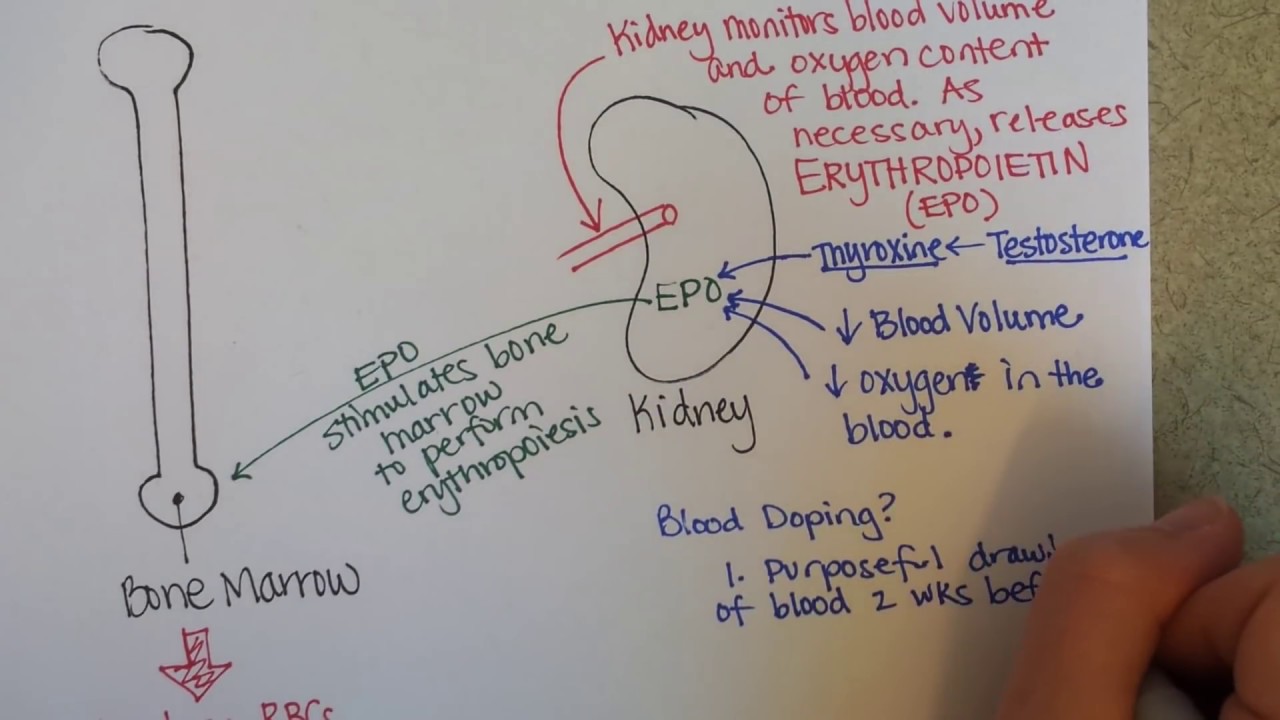 Kidney monitors blood volume
and oxygen content
of blood. As
necessary, releases
ERYTHROPOIETIN
(EPO)
Thyroxine ← Testosterone
EPO
↓ Blood Volume
↓ oxygen in the
blood.
Kidney
EPO
stimulates bone
marrow
to perform
erythropoiesis
Blood Doping?
1. Purposeful
of blood 2 wks
Bone Marrow
RBCs